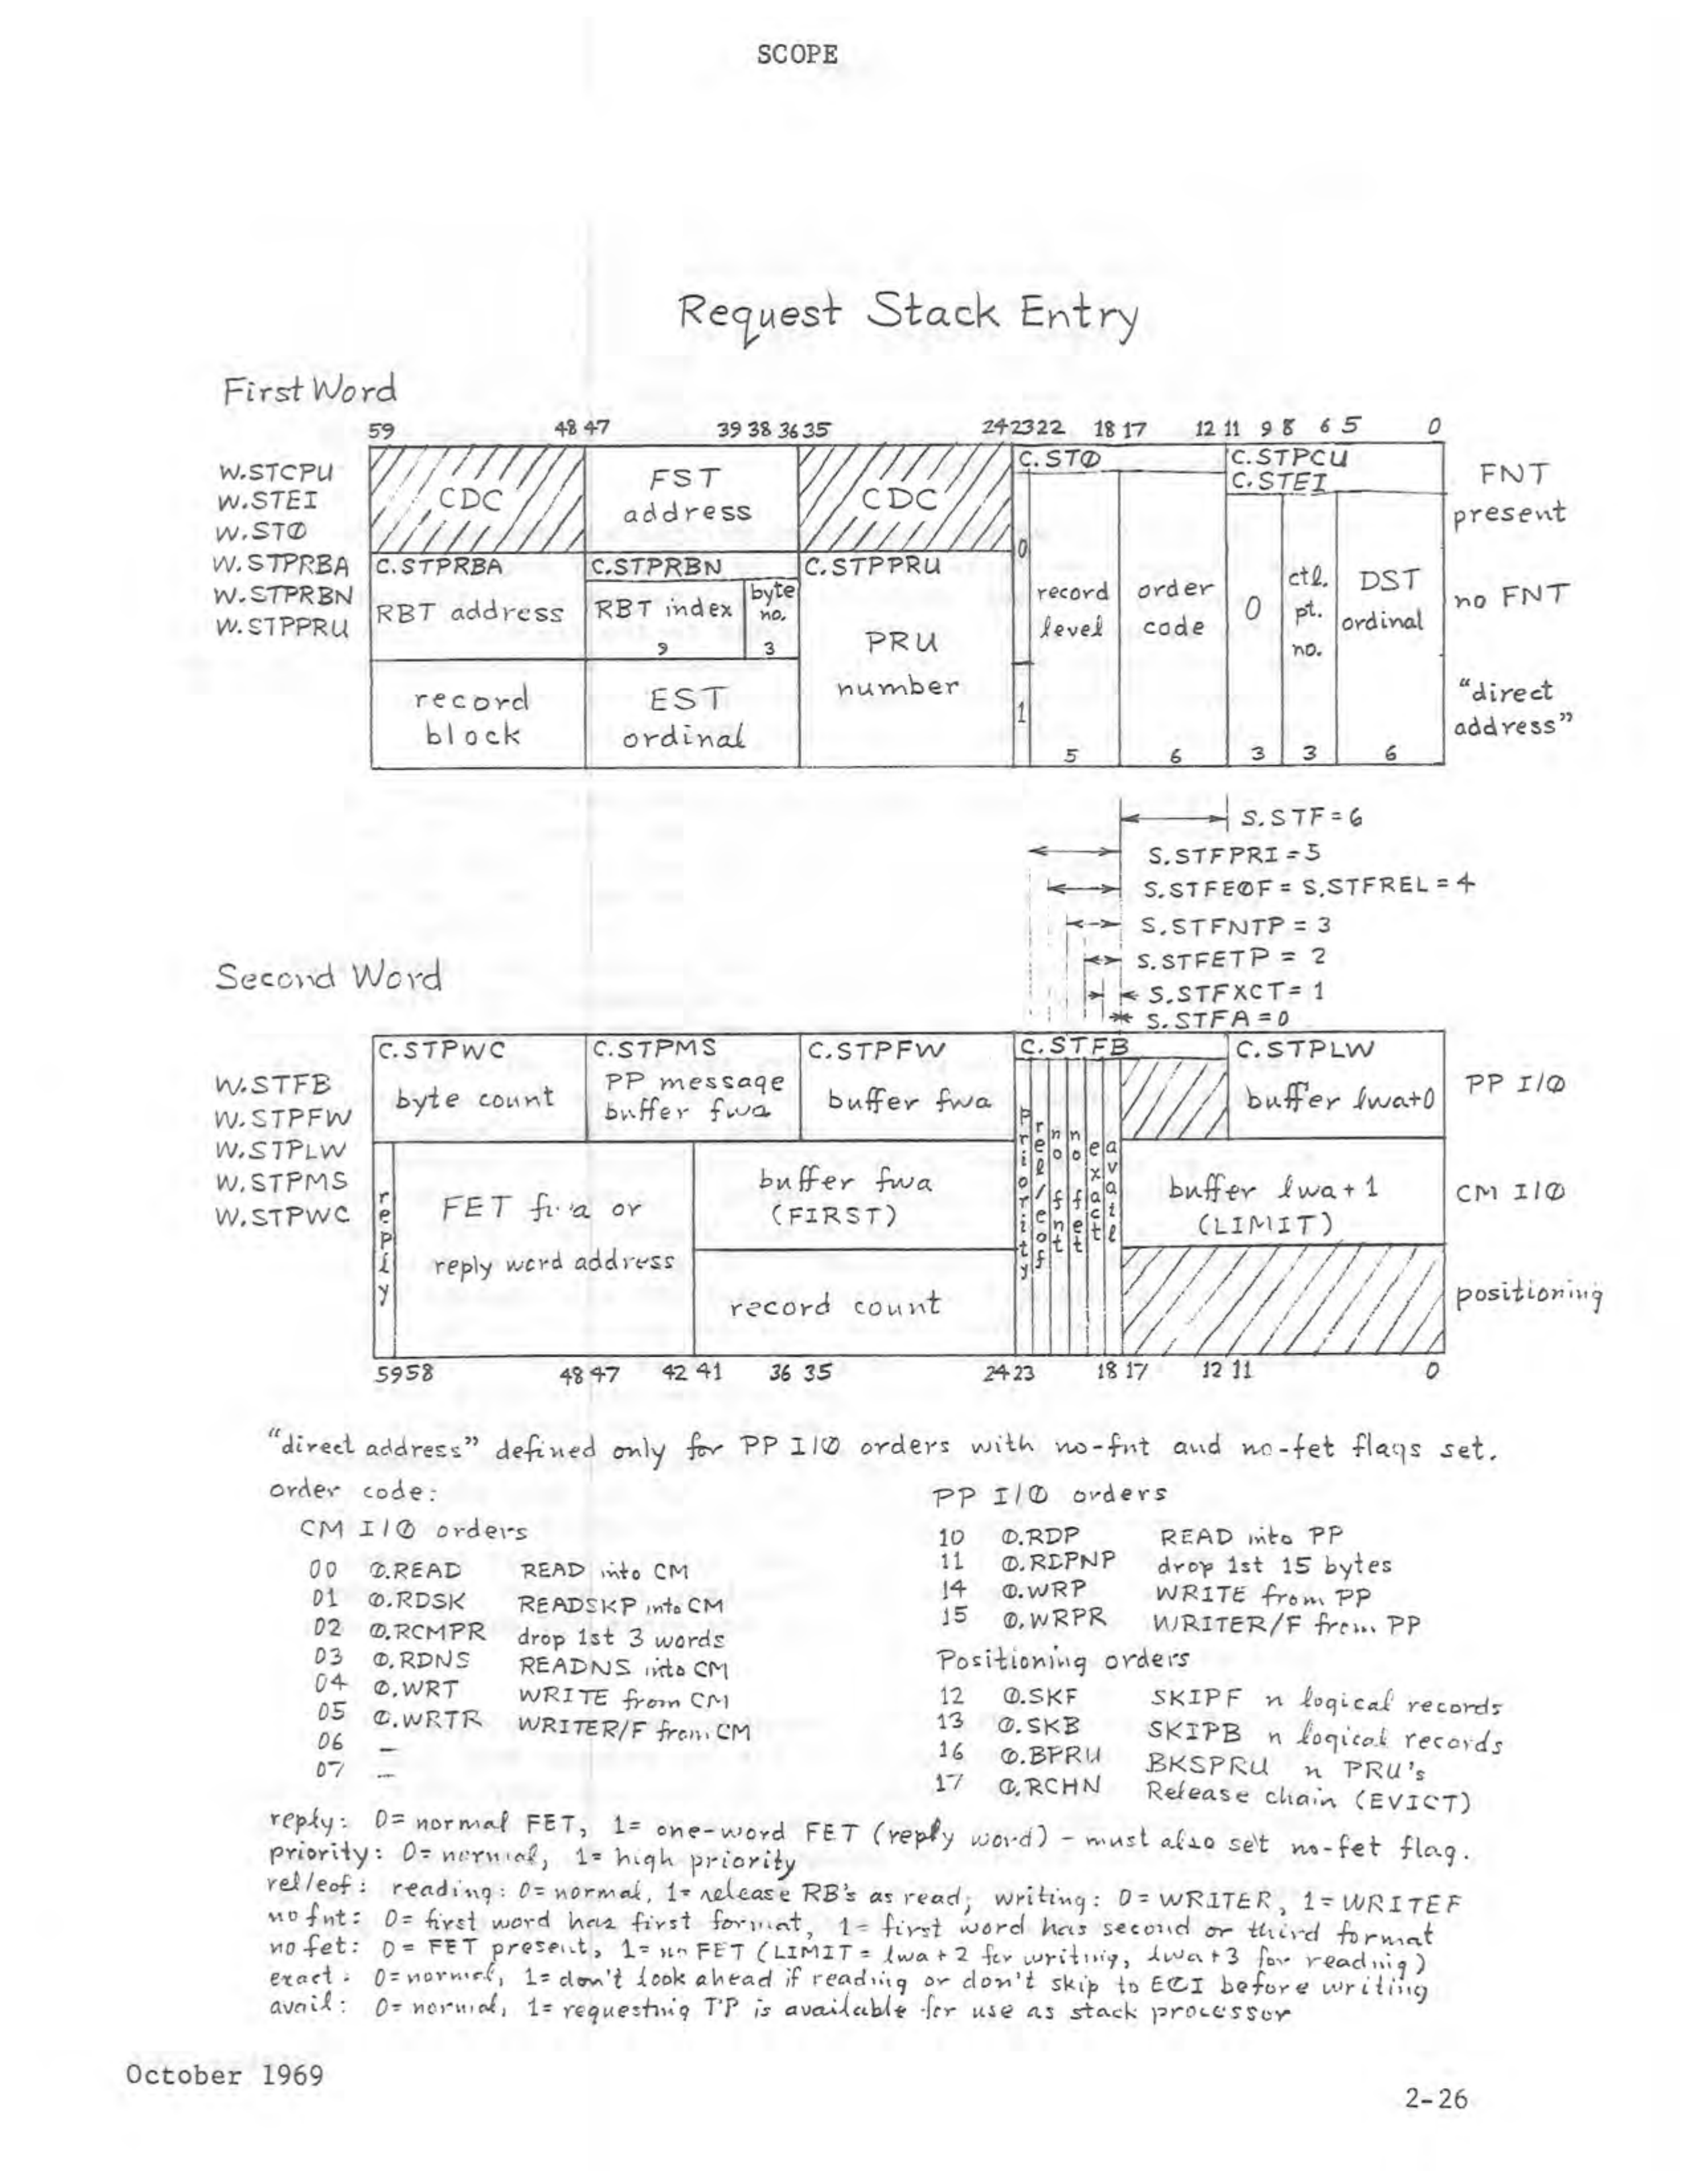 SCOPE
Request Stack Entry
First Word
59 48 47 39 38 36 35 24 23 22 18 17 12 11 9 8 6 5 0
W.STCPU
W.STEI
W.STØ
W.STPRBA
W.STPRBN
W.STPPRU
CDC
FST
address
CDC
C.STØ
C.STPCU
C.STEI
FNT
present
C.STPRBA
RBT address
C.STPRBN
RBT index
9
byte
no.
3
C.STPPRU
PRU
number
0
1
record
level
5
order
code
6
0
3
ctl.
pt.
no.
3
DST
ordinal
6
no FNT
record
block
EST
ordinal
"direct
address"
S.STF = 6
S.STFPRI = 5
S.STFEØF = S.STFREL = 4
S.STFNTP = 3
S.STFETP = 2
S.STFXCT = 1
S.STFA = 0
Second Word
W.STFB
W.STPFW
W.STPLW
W.STPMS
W.STPWC
C.STPWC
byte count
C.STPMS
PP message
buffer fwa
C.STPFW
buffer fwa
C.STFB
C.STPLW
buffer lwa+0
PP I/Ø
reply
FET fwa or
reply word address
buffer fwa
(FIRST)
record count
priority
rel/eof
no fnt
no fet
exact
avail
buffer lwa + 1
(LIMIT)
CM I/Ø
positioning
59 58 48 47 42 41 36 35 24 23 18 17 12 11 0
"direct address" defined only for PP I/Ø orders with no-fnt and no-fet flags set.
order code:
CM I/Ø orders
00 Ø.READ READ into CM
01 Ø.RDSK READSKP into CM
02 Ø.RCMPR drop 1st 3 words
03 Ø.RDNS READNS into CM
04 Ø.WRT WRITE from CM
05 Ø.WRTR WRITER/F from CM
06 —
07 —
PP I/Ø orders
10 Ø.RDP READ into PP
11 Ø.RDPNP drop 1st 15 bytes
14 Ø.WRP WRITE from PP
15 Ø.WRPR WRITER/F from PP
Positioning orders
12 Ø.SKF SKIPF n logical records
13 Ø.SKB SKIPB n logical records
16 Ø.BPRU BKSPRU n PRU's
17 Ø.RCHN Release chain (EVICT)
reply: 0= normal FET, 1= one-word FET (reply word) - must also set no-fet flag.
priority: 0= normal, 1= high priority
rel/eof: reading: 0= normal, 1= release RB's as read; writing: 0 = WRITER, 1 = WRITEF
no fnt: 0= first word has first format, 1= first word has second or third format
no fet: 0= FET present, 1= no FET (LIMIT = lwa + 2 for writing, lwa + 3 for reading)
exact: 0= normal, 1= don't look ahead if reading or don't skip to EØI before writing
avail: 0= normal, 1= requesting PP is available for use as stack processor
October 1969
2-26